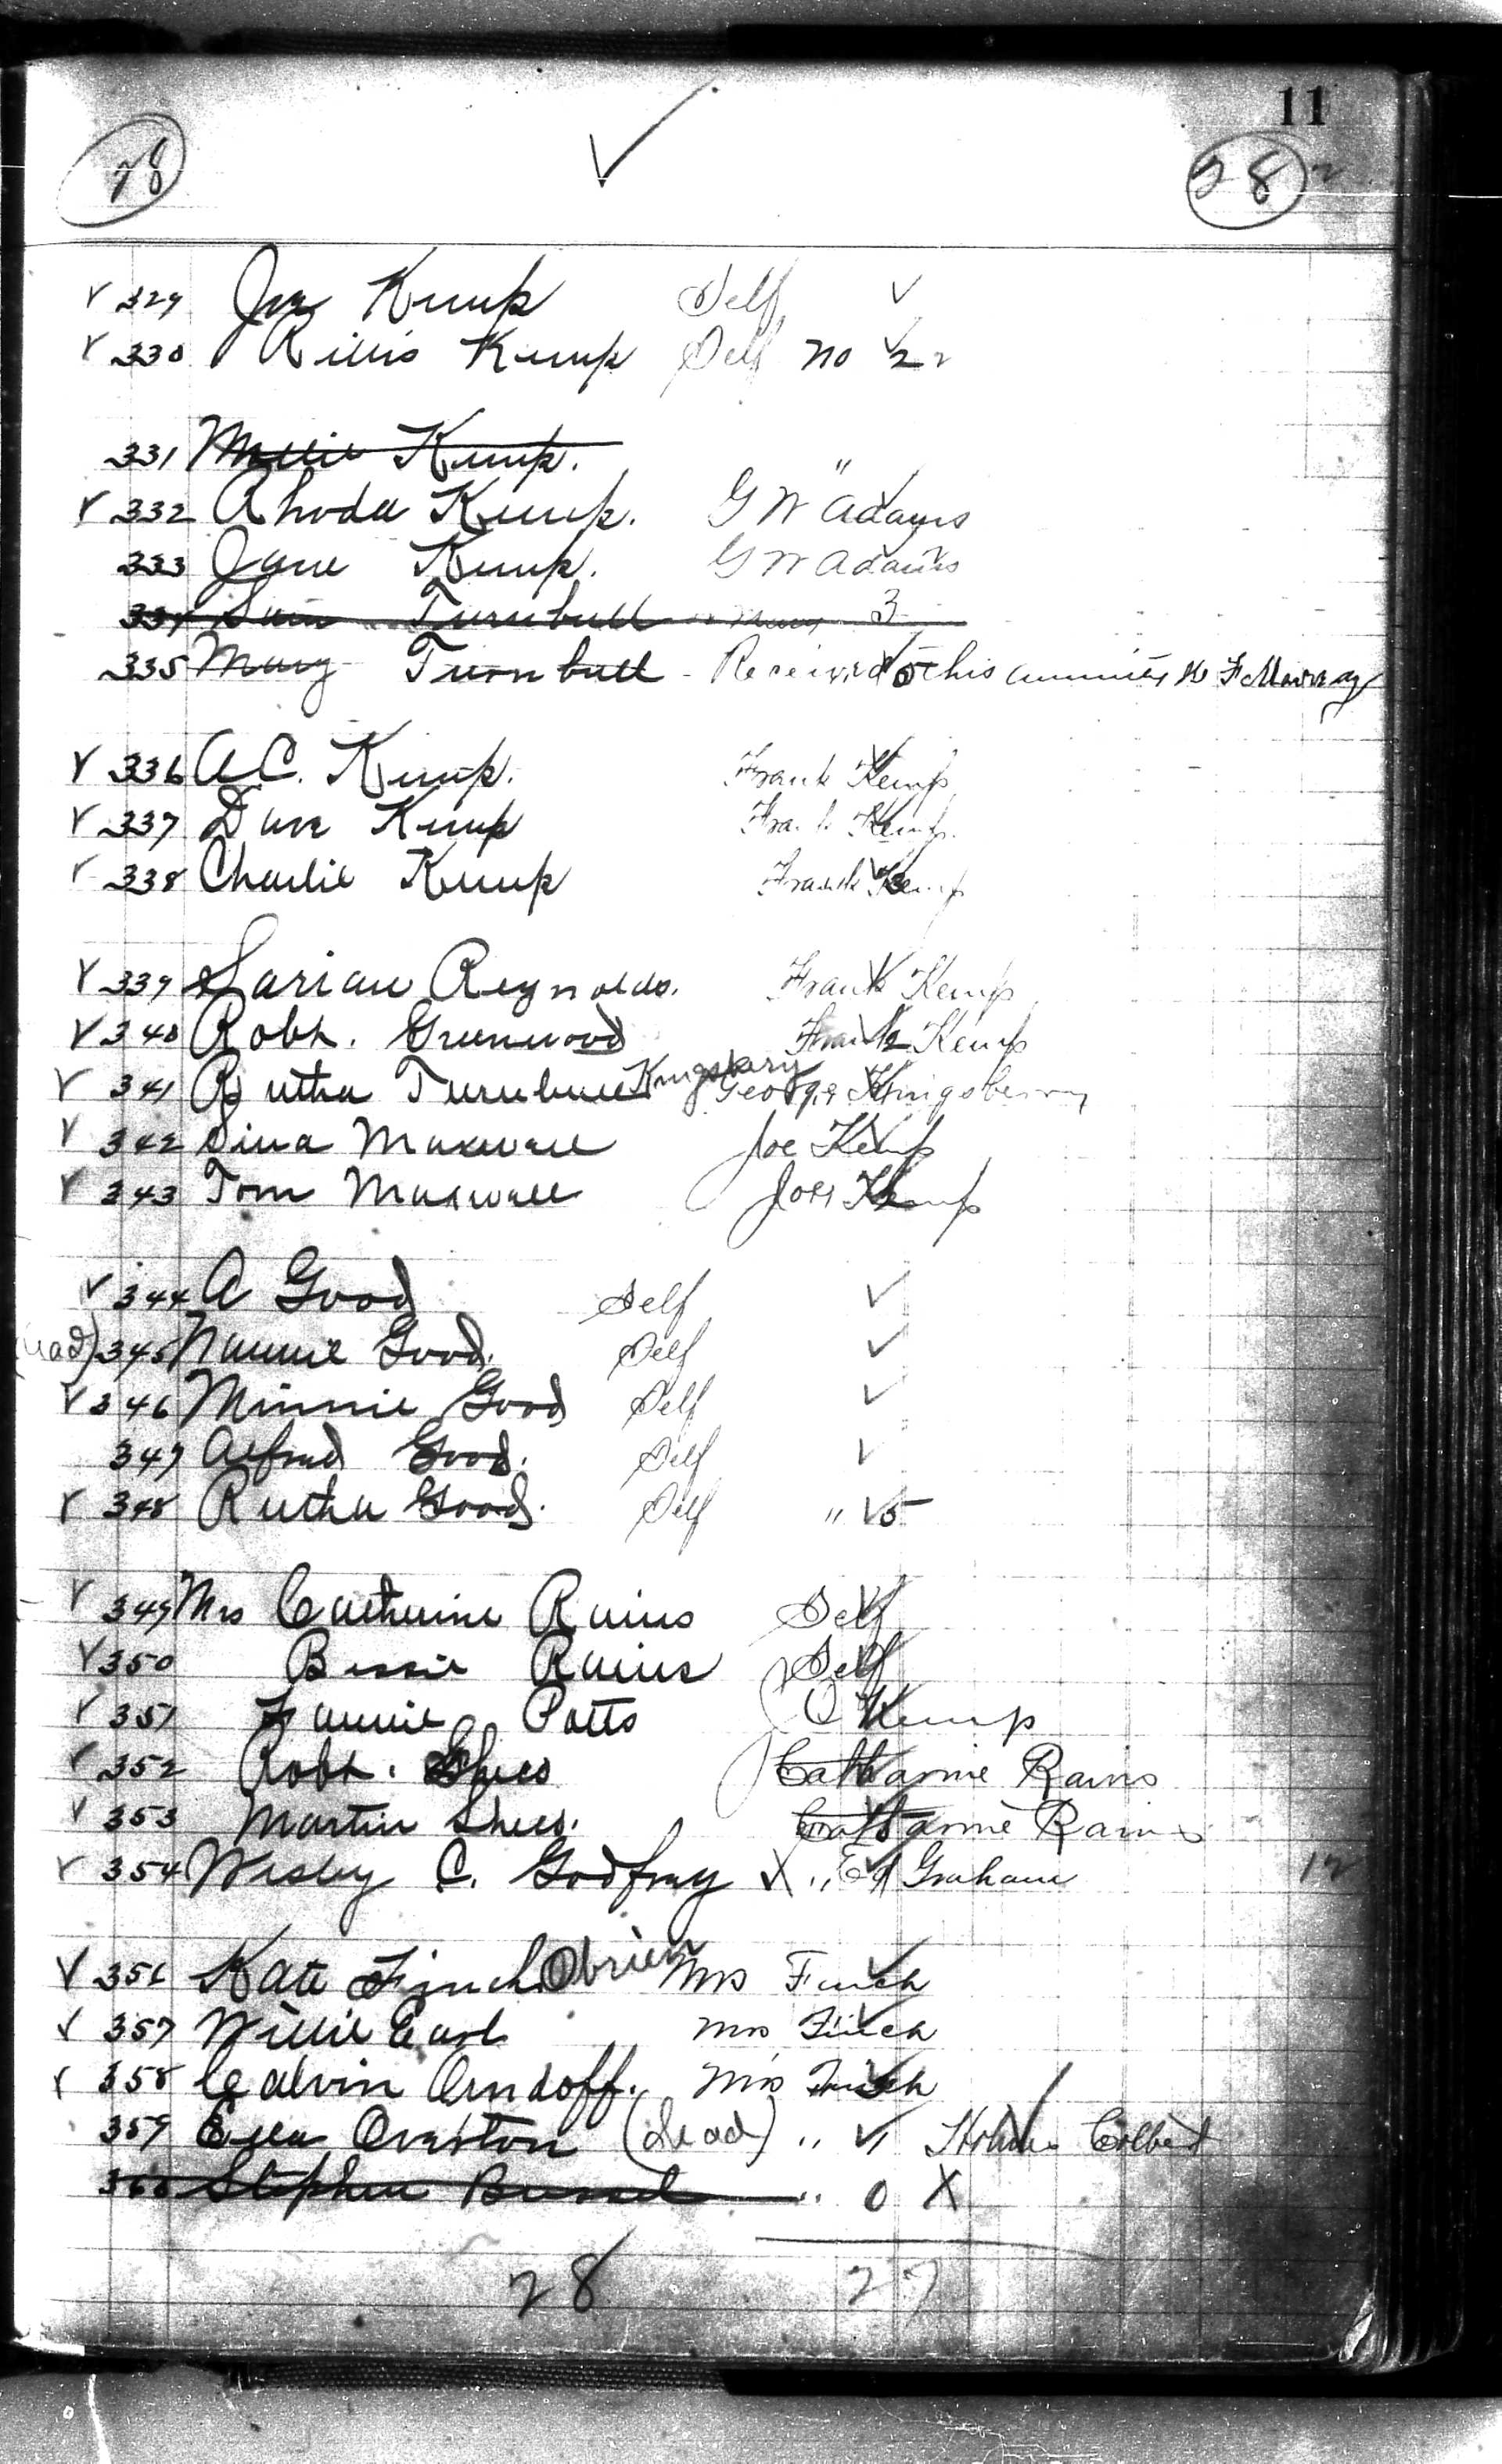 11
28 28
✓ 329 Joe Kemp Self ✓
✓ 330 Rillis Kemp Self no 22
331 Mollie Kemp.
✓ 332 Rhoda Kemp. G W Adams
333 Jane Kemp. G W Adams
334 Sam Turnbull 3
335 Mary Turnbull - Received this
✓ 336 A C. Kemp. Frank Kemp
✓ 337 Dave Kemp Frank Kemp.
✓ 338 Charlie Kemp Frank Kemp
✓ 339 Reynolds. Frank Kemp
✓ 340 Robt. Greenwood Frank Kemp
✓ 341 Rutha Turnbull Kingsbery George Kingsberry
✓ 342 Sina Maxwell Joe Kemp
✓ 343 Tom Maxwell Joe Kemp
✓ 344 A Good Self ✓
345 Nannie Good. Self ✓
✓ 346 Minnie Good Self ✓
347 Alfred Good. Self ✓
✓ 348 Rutha Good. Self " ✓ 5
✓ 349 Mrs Catherine Rains Self
✓ 350 Bessie Rains Self
✓ 351 Fannie Potts Kemp
✓ 352 Robt. Catharine Rains
✓ 353 Martin Catharine Rains
✓ 354 Wesley C. Godfrey X " Ed Graham 12
✓ 356 Kate Finch Obrien Mrs Finch
✓ 357 Willie Earl Mrs Finch
✓ 358 Calvin Orndoff. Mrs Finch
359 Overton (dead) " ✓ Colbert
360 Stephen " 0 X
28 27